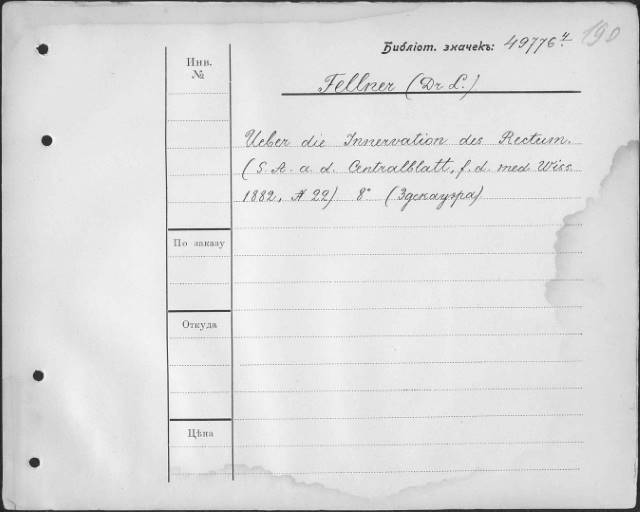 190
Библіот. значекъ: 49776 4.
Инв. №
Fellner (Dr L.)
Ueber die Innervation des Rectum.
(S. A. a. d. Centralblatt, f. d. med Wiss
1882, № 22) 8° (Эдскауэра)
По заказу
Откуда
Цѣна